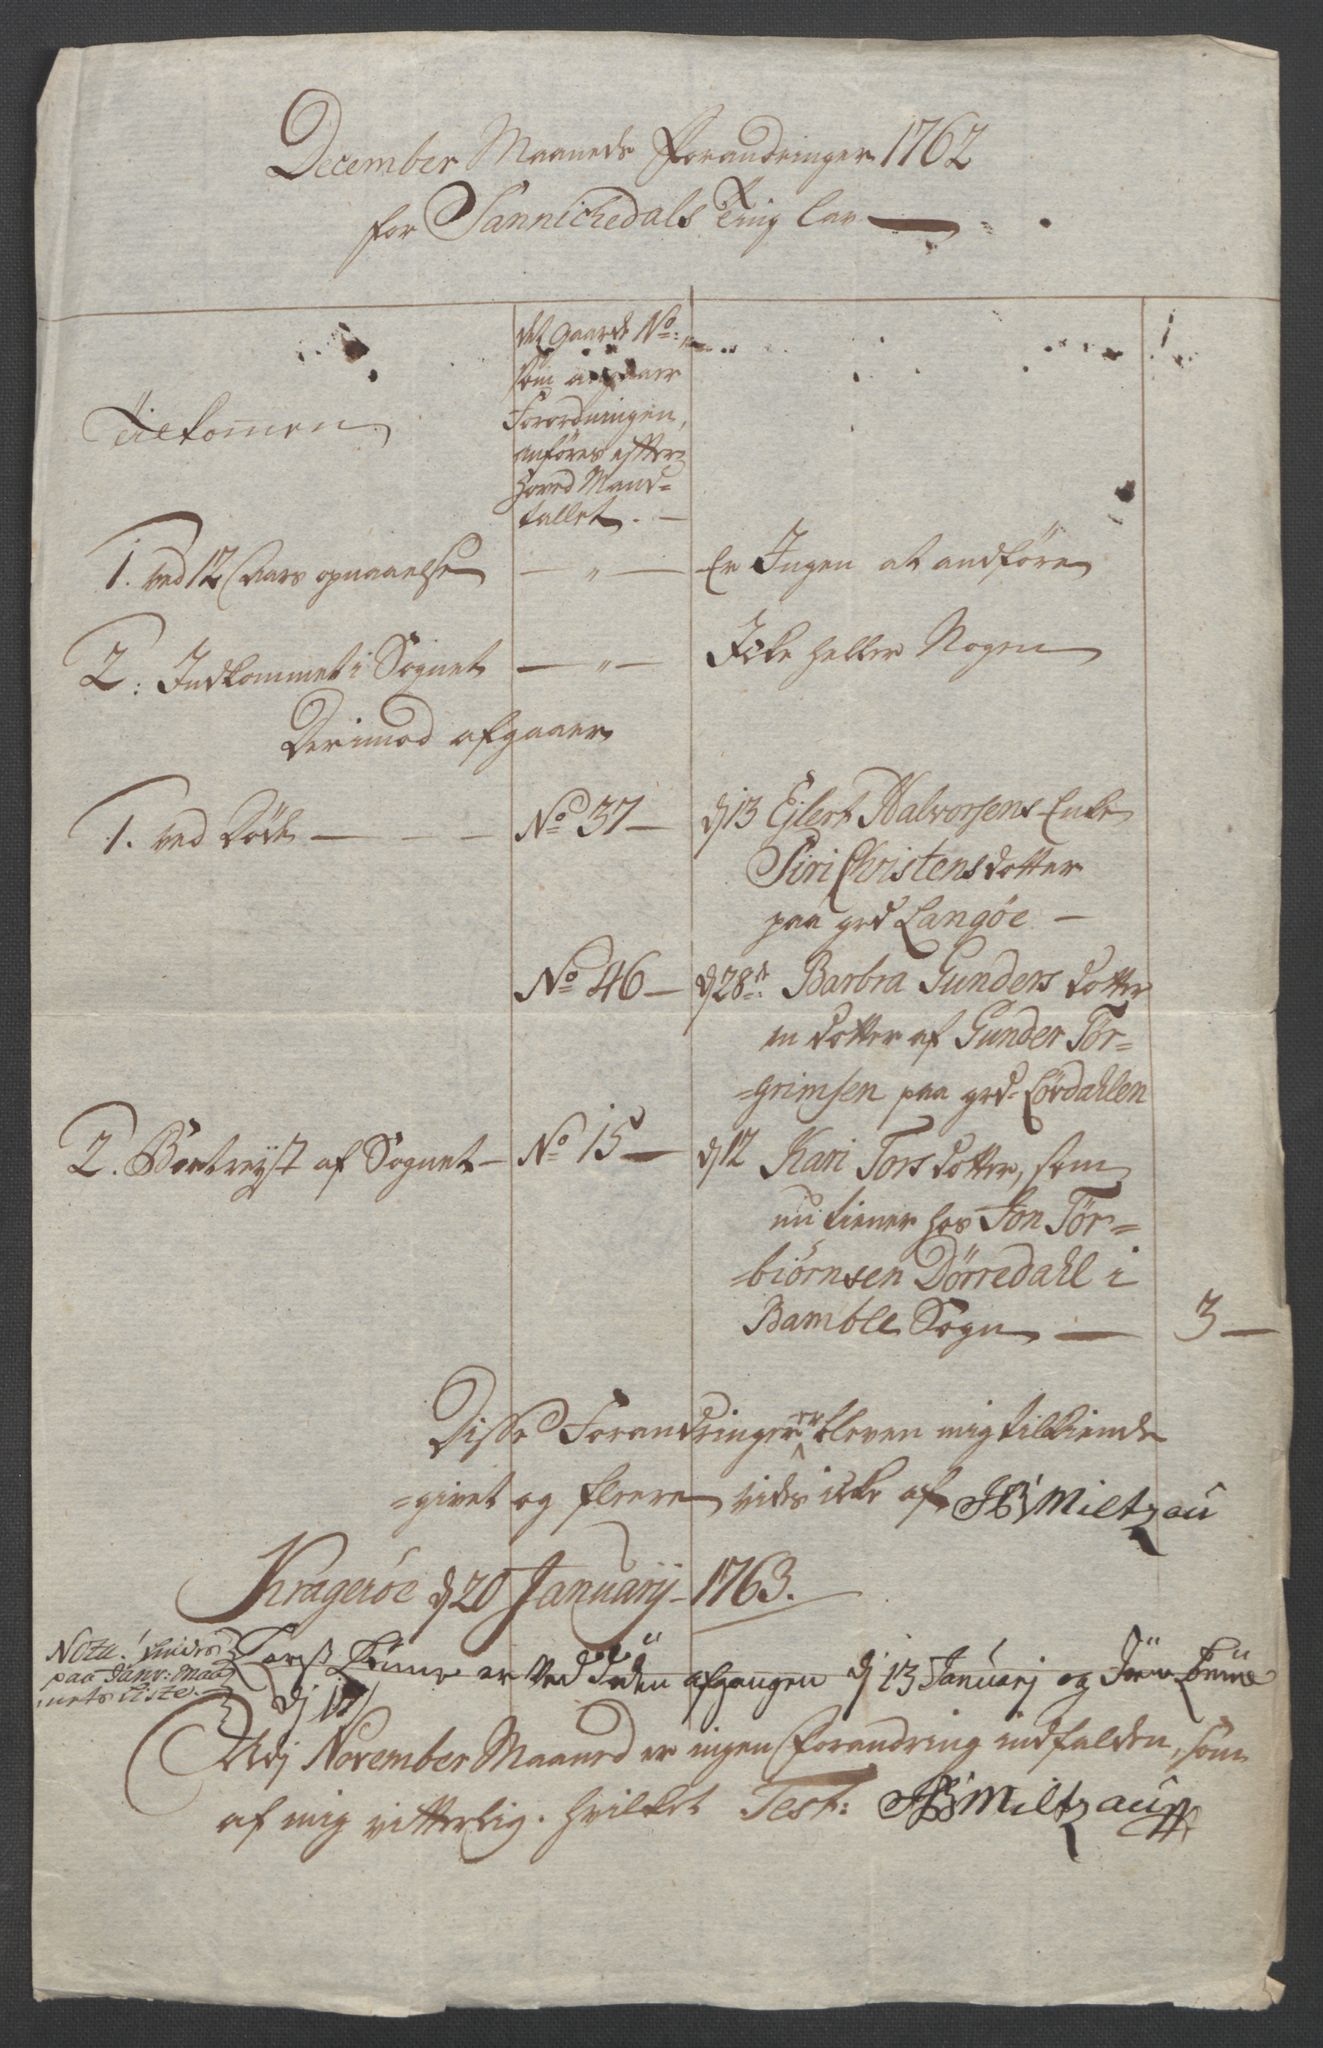 December Maaneds Forandringer 1762
for Sannichedals Ting lav
det Gaards No:
som angaaer
Forordningen,
anföres efter
Hoved Mand=
tallet. —
Tilkommen
1. ved 12 Aars opnaaelse — " — Er Ingen at andföre
2: Indkommet i Sognet — " — Icke heller Nogen
Derimod afgaaer
1. ved Död — — — No 37 — dj 13 Ejlert Halvorsens Enke
Siri Christensdotter
paa grd Langöe —
No 46 — dj 28de: Barbra Gunders dotter
en dotter af Gunder Tor=
=grimsen paa grd: Lövdahlen
2. Bortreyst af Sognet — No 15 — dj 12 Kari Tors dotter, som
nu tiener hos Jon Tör=
=biörnsen Dörredahl i
Bamble Sogn — 3 —
Disse Forandringer er bleven mig tilkiende
=givet og fleere vides icke af Miltzau
Krageröe dj 20 Januarij 1763.
Nota. findes
paa Janr: Maa
nets Liste.
er ved Döden afgangen dj 13 Januarj og
dj
Udj November Maaned er ingen Forandring indfalden, som
af mig vitterlig. hvilket Test: Miltzau